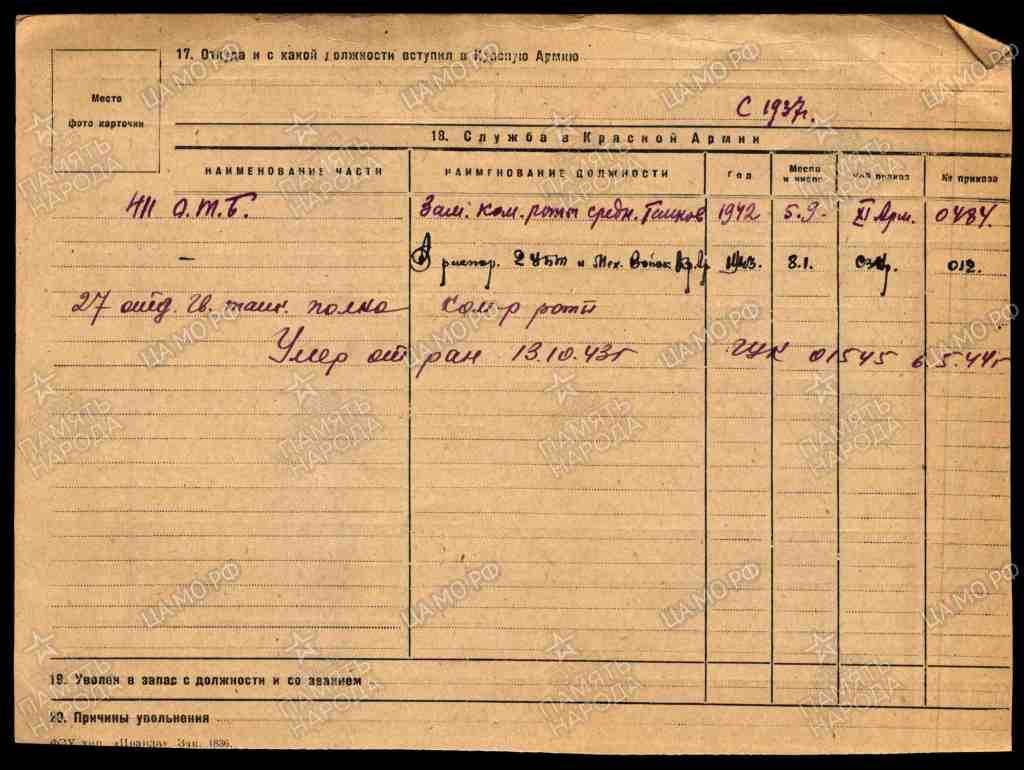 17. Откуда и с какой должности вступил в Красную Армию
Место
фото карточки
С 1937г.
18. Служба в Красной Армии
НАИМЕНОВАНИЕ ЧАСТИ НАИМЕНОВАНИЕ ДОЛЖНОСТИ Год Месяц и число Чей приказ № приказа
411 О.Т.Б. Зам. ком. роты средн. Танков 1942 5.9. XI Арм. 0484.
— распор. и Мех. Войск 1943. 8.1. 012.
27 отд. гв. танк. полка ком-р роты
Умер от ран 13.10.43г ГУК 01545 6.5.44г
19. Уволен в запас с должности и со званием
20. Причины увольнения
ФОХ тип. «Правда» Зак. 1836.
ПАМЯТЬ НАРОДА
ЦАМО.РФ